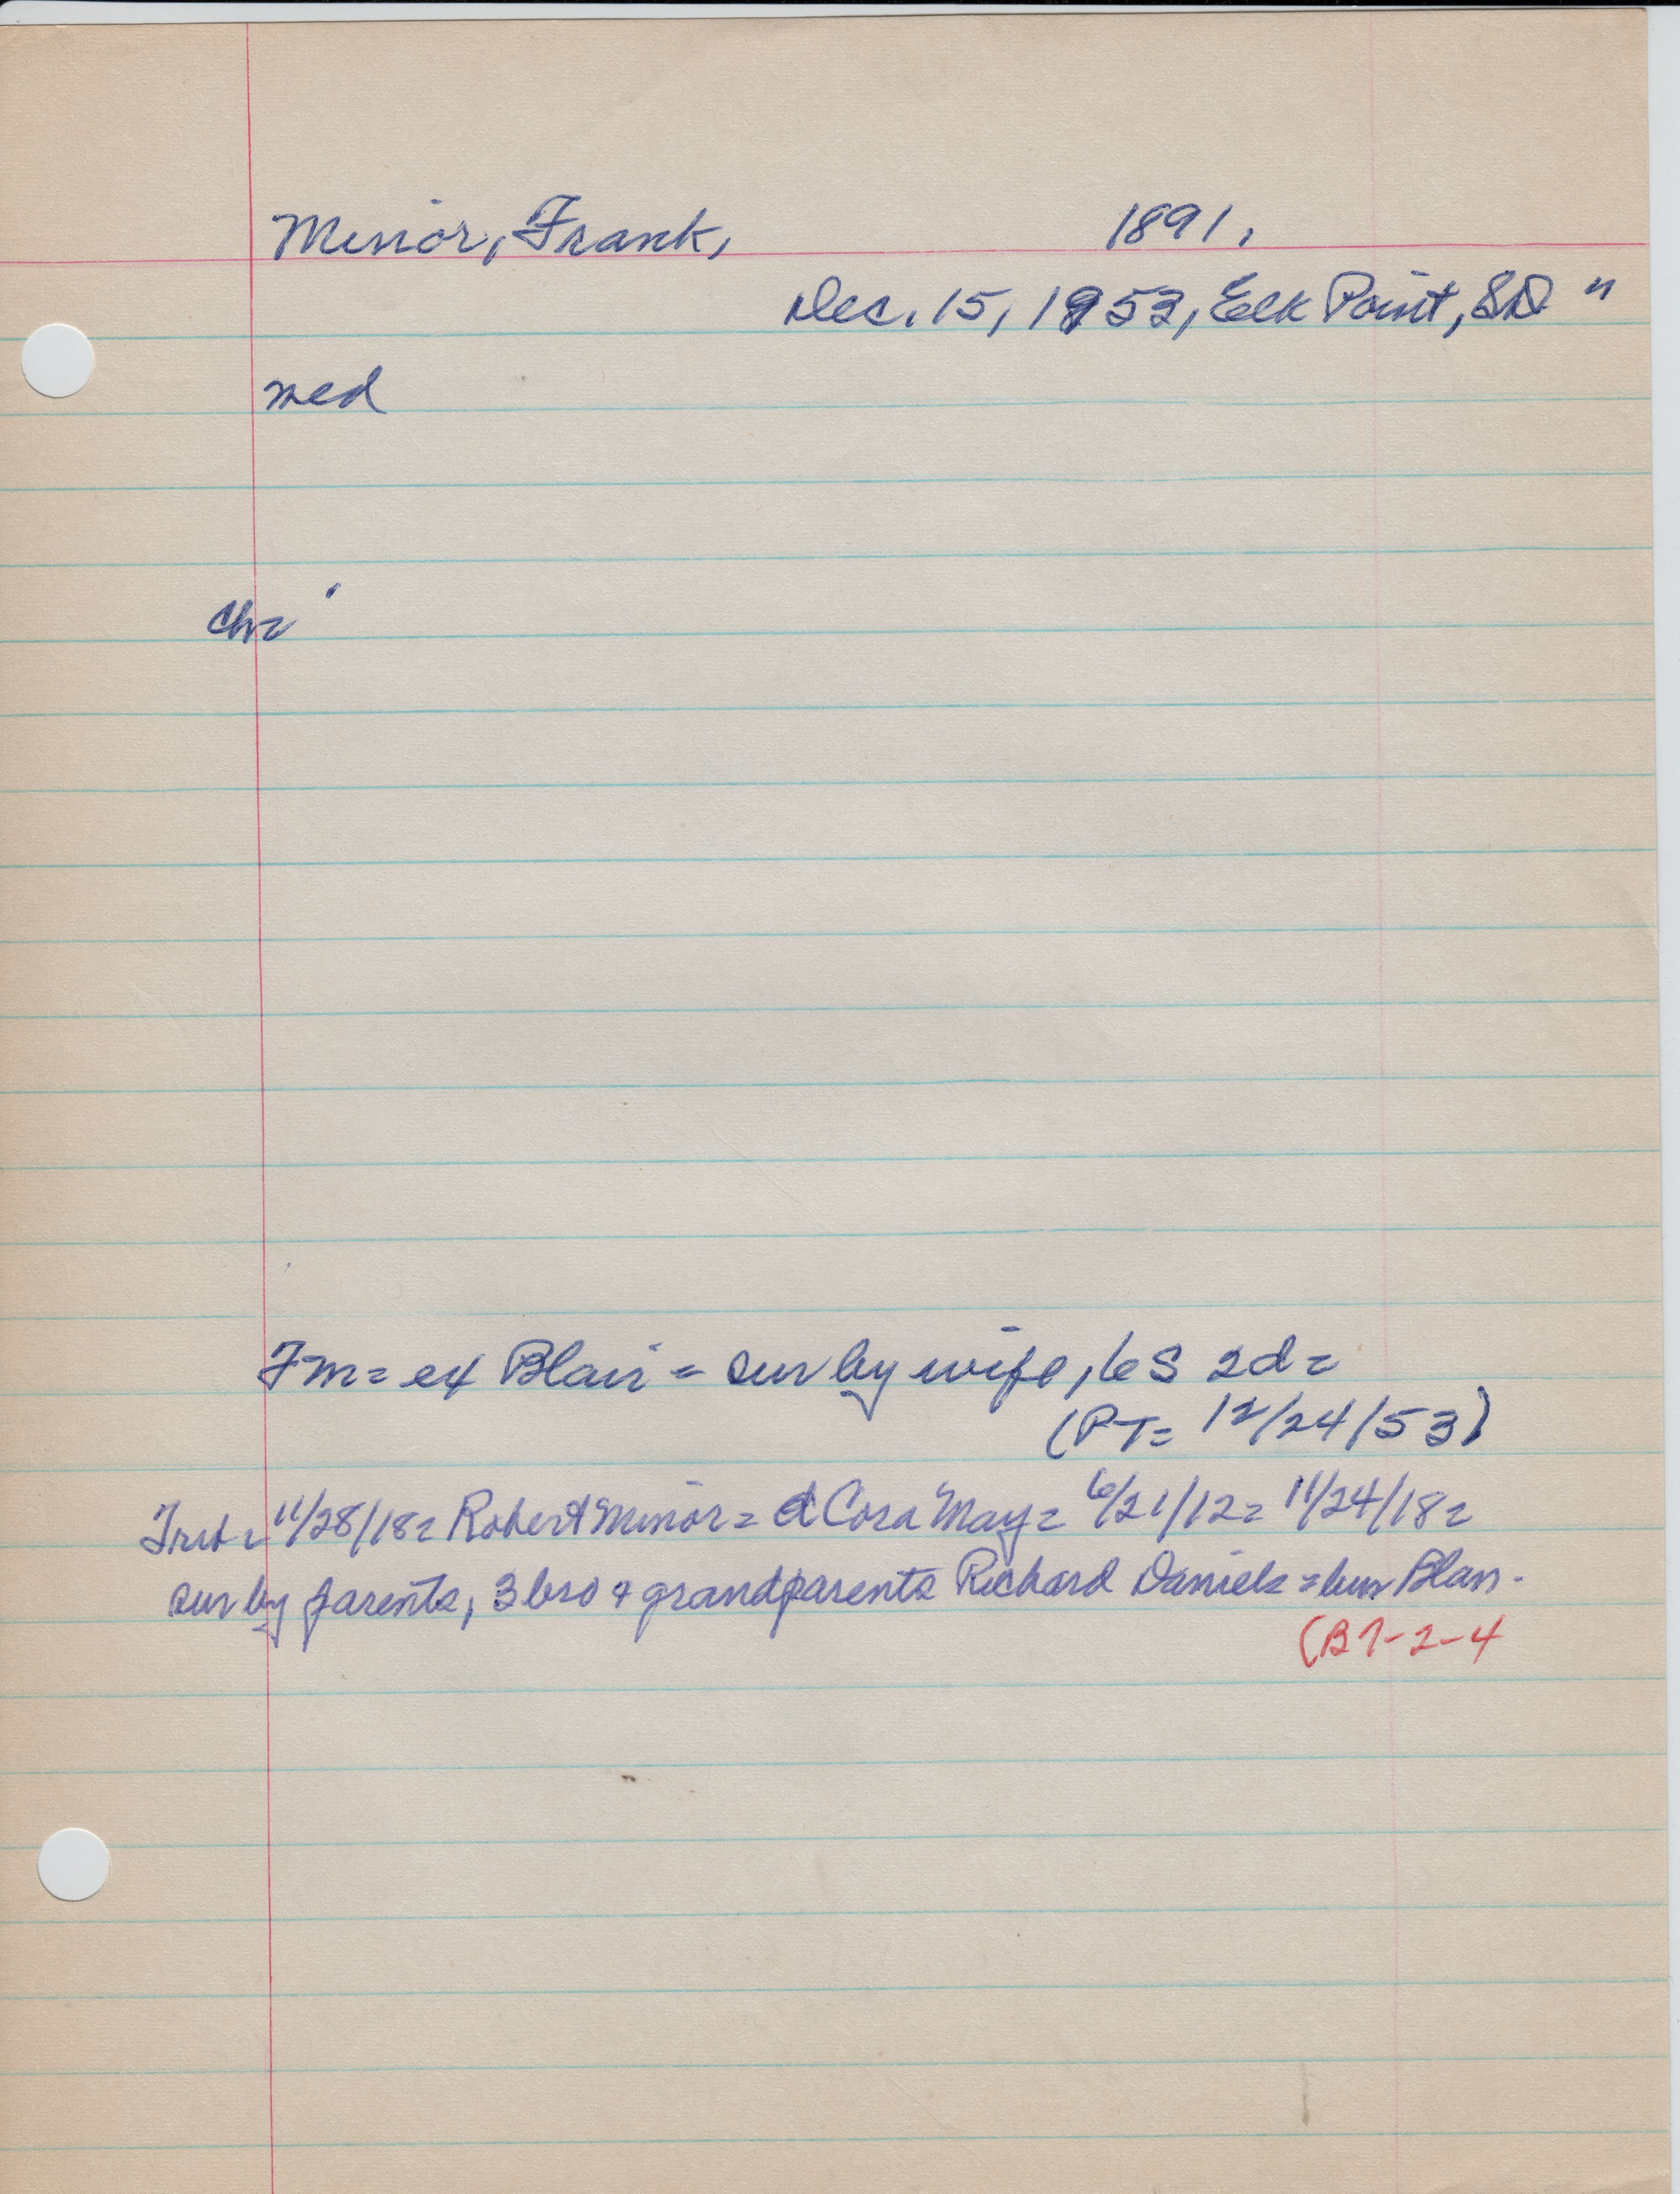 Minor, Frank, 1891,
Dec. 15, 1953, Elk Point, SD "
med
Ch=
Fm= ex Blair = sur by wife, 6 S 2d=
(PT= 12/24/53)
Trib= 11/28/18= Robert Minor= d Cora May= 6/21/12= 11/24/18=
sur by parents, 3 bro & grandparents Richard Daniels = bur Blair.
(B1-2-4